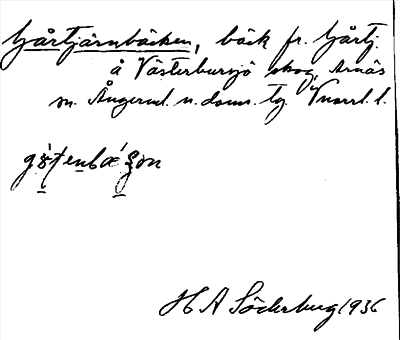 Gårtjärnbäcken, bäck fr. Gårtj.
å Västerbursjö skog, Arnäs
sn. Ångerml. n. doms. tg. Vnorrl. l.
H A Söderberg 1936